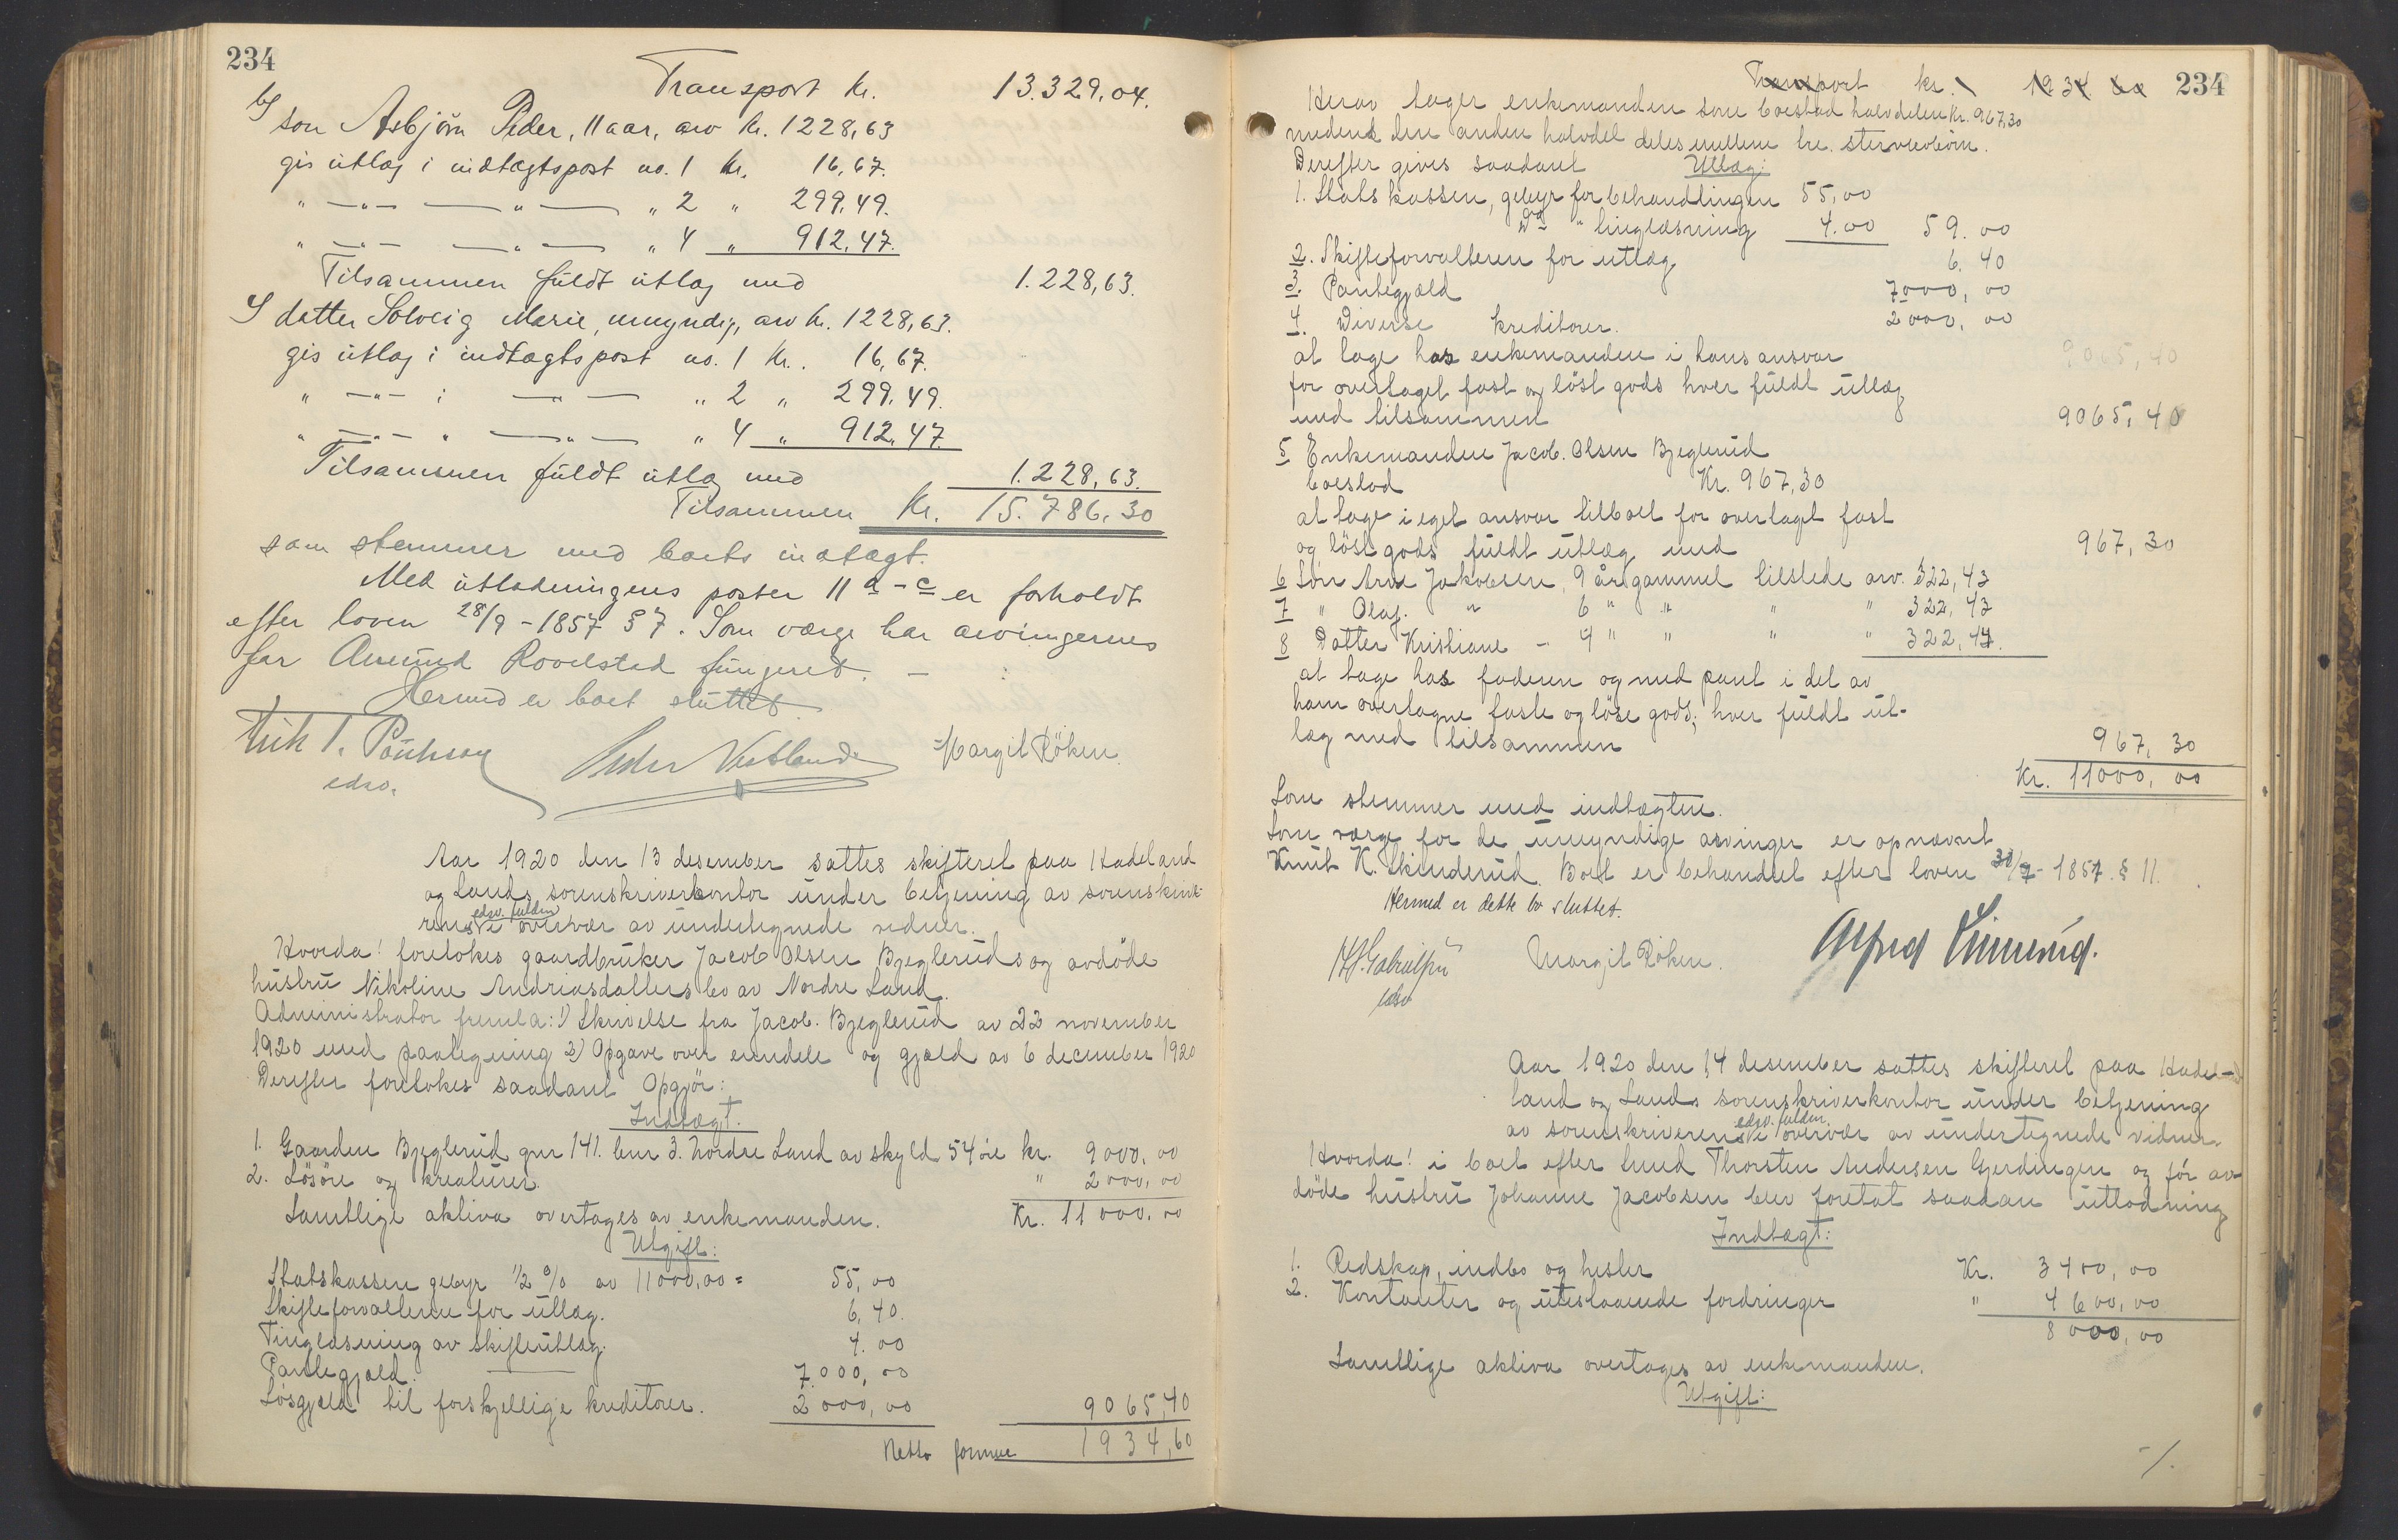 234
Transport kr. 13.329,04.
b/ søn Asbjørn Peder, 11 aar, arv kr. 1228,63
gis utlæg i indtægtspost no. 1 kr. 16,67.
" —"— —"— " 2 " 299,49.
" —"— —"— " 4 " 912,47.
Tilsammen fuldt utlæg med 1.228,63.
c/ datter Solveig Marie, umyndig, arv kr. 1228,63.
gis utlæg i indtægtspost no. 1 kr. 16,67.
" —"— i —"— " 2 " 299,49.
" —"— " —"— " 4 " 912,47.
Tilsammen fuldt utlæg med 1.228,63.
Tilsammen kr. 15.786,30
som stemmer med boets indtægt.
Med utlodningens poster 11 a – c er forholdt
efter loven 28/9 – 1857 § 7. Som værge har arvingernes
far Amund Rovelstad fungeret. –
Hermed er boet sluttet.
Peder Vestland Margit Röken
edsv.
Aar 1920 den 13 desember sattes skifteret paa Hadeland
og Lands sorenskriverkontor under betjening av sorenskrive-
rens edsv. fuldm. i overvær av undertegnede vidner.
Hvorda! foretokes gaardbruker Jacob Olsen Bjegleruds og avdöde
hustru Nikoline Andriasdatters bo av Nordre Land.
Administrator fremla: 1) Skrivelse fra Jacob. Bjeglerud av 22 november
1920 med paategning 2) Opgave over eiendele og gjæld av 6 december 1920
Derefter foretokes saadant Opgjör:
Indtægt.
1. Gaarden Bjeglerud gnr 141. bnr 3. Nordre Land av skyld 54 öre kr. 9000,00
2. Lösöre og kreaturer. " 2000,00
Samtlige aktiva overtages av enkemanden. Kr. 11000,00
Utgift:
Statskassen gebyr 1/2 % av 11000,00 = 55,00
Skifteforvalteren for utlæg. 6,40.
Tinglæsning av skifteutlæg. 4.00
Pantegjæld. 7.000,00
Lösgjæld til forskjellige kreditorer. 2000,00 9065,40
Netto formue 1934,60
Transport kr. 1934 60 234
Herav tager enkemanden som boeslod halvdelen Kr. 967,30
medens den anden halvdel deles mellem tre. stervbobörn.
Derefter gives saadant Utlæg:
1. Statskassen, gebyr for behandlingen 55,00
Do " tinglæsning 4.00 59.00
2. Skifteforvalteren for utlæg 6.40
3. Pantegjæld 7000,00
4. Diverse kreditorer. 2000,00
at tage hos enkemanden i hans ansvar 9065,40
for overtaget fast og löst gods hver fuldt utlæg
med tilsammen 9065,40
5 Enkemanden Jacob. Olsen Bjeglerud
boeslod Kr. 967,30
at tage i eget ansvar til boet for overtaget fast
og löst gods fuldt utlæg med 967,30
6 Sön Arne Jakobsen, 9 år gammel tilstede arv. 322,43
7 " Olaf. " 6 " " " " 322,43
8 Datter Kristiane – 4 " " " " 322,44.
at tage hos faderen og med pant i det av
ham overtagne faste og löse gods, hver fuldt ut-
læg med tilsammen 967,30
Kr. 11000,00
Som stemmer med indtægten.
Som værge for de umyndige arvinger er opnævnt
Knut K. Skinderud. Boet er behandlet efter loven 30/7 - 1857. § 11.
Hermed er dette bo sluttet.
Margit Röken. Alfred
edsv
Aar 1920 den 14 desember sattes skifteret paa Hade-
land og Lands sorenskriverkontor under betjening
av sorenskriverens edsv. fuldm. i overvær av undertegnede vidner.
Hvorda! i boet efter Thorsten Andersen Gjerdingen og för av-
döde hustru Johanne Jacobsen blev foretat saadan utlodning
Indtægt:
1. Redskap, indbo og hester Kr. 3400,00
2. Kontanter og utestaaende fordringer " 4600,00
8000,00
Samtlige aktiva overtages av enkemanden.
Utgift:
-/.